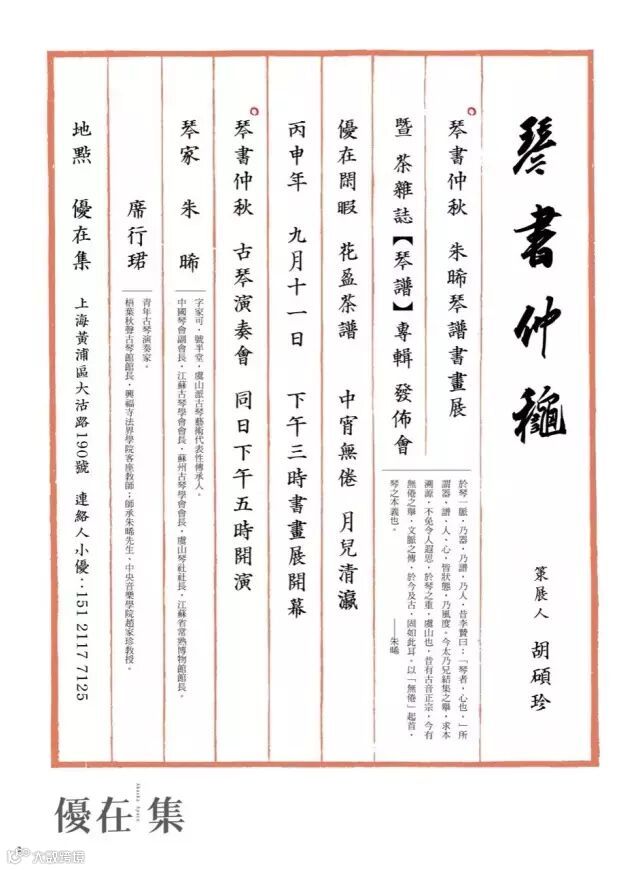 琴書仲龝
策展人 胡碩珍
琴書仲秋 朱晞琴譜書畫展
暨 茶雜誌【琴譜】專輯 發佈會
於琴一脈，乃器，乃譜，乃人，昔李贄曰：「琴者，心也，」所
謂器、譜、人、心，皆狀態，乃風度。今太乃兄結集之舉，求本
溯源，不免令人遐思，於琴之重，虞山也，昔有古音正宗，今有
無倦之舉，文脈之傳，於今及古，固如此耳。以「無倦」起首，
琴之本義也。
——朱晞
優在閑暇 花盈茶譜 中宵無倦 月兒清瀛
丙申年 九月十一日 下午三時書畫展開幕
琴書仲秋 古琴演奏會 同日下午五時開演
琴家 朱晞
字家可，號半堂，虞山派古琴藝術代表性傳承人。
中國琴會副會長，江蘇古琴學會會長，蘇州古琴學會會長，虞山琴社社長，江蘇省常熟博物館館長。
席行珺
青年古琴演奏家。
梧葉秋聲古琴館館長，興福寺法界學院客座教師；師承朱晞先生、中央音樂學院趙家珍教授。
地點 優在集 上海黃浦區大沽路190號 連絡人小優：151 2117 7125
優在集
Akasha Space
大數跨境